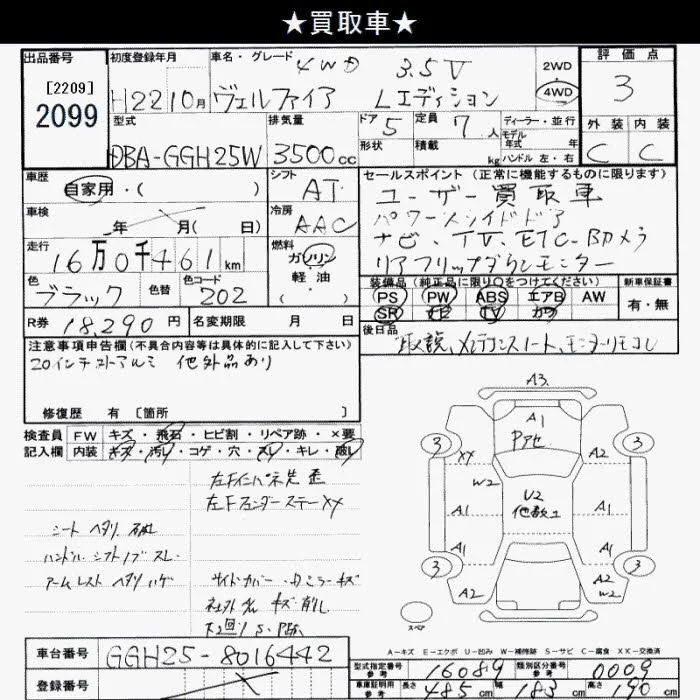 ★買取車★
出品番号 初度登録年月 車名・グレード 4WD 3.5V 2WD 評価点
[2209]
2099 H22 10月 ヴェルファイア Lエディション 4WD 3
型式 排気量 ドア 5 定員 7人 ディーラー・並行 外装 内装
DBA-GGH25W 3500cc 形状 積載 kg モデル年式 年 ハンドル 左・右 C C
車歴 シフト セールスポイント (正常に機能するものに限ります)
自家用・( ) AT ユーザー買取車
車検 冷房 パワースライドドア
年 月( 日) AAC ナビ、TV、ETC、Bカメラ
走行 燃料 リアフリップダウンモニター
16万0千461km ガソリン
軽油
( )
色 色替 色コード 装備品 (純正品に限り○をつけてください) 新車保証書
ブラック 202 PS PW ABS エアB AW 有・無
SR TV
R券 18,290円 名変期限 月 日 後日品
注意事項申告欄(不具合内容等は具体的に記入して下さい) 取説、メンテナンスノート、モニターリモコン
20インチ 社外アルミ 他外品あり
修復歴 有 [箇所 ]
検査員 FW キズ・飛石・ヒビ割・リペア跡・×要
記入欄 内装 キズ・汚レ・コゲ・穴・スレ・キレ・破レ
左Fインパネ先 歪
左Fフェンダーステー XX
シート ヘタリ 破レ
ハンドル シフトノブ スレ
アームレスト ヘタリ ハゲ
サイドカバー・ ミラー キズ
社外 キズ 削レ
A3
A1
Pアセ
3 3
XX A2
W2
U2
A1 A1
A1 A1
3 3
A2 A2
W2
スペア
A-キズ E-エクボ U-凹み W-補修跡 S-サビ C-腐食 XX-交換済
車台番号 GGH25-8016442
型式指定番号 参考 16089 類別区分番号 参考 0009
登録番号
車庫証明用 参考 長さ 485cm 幅 183cm 高さ 190cm